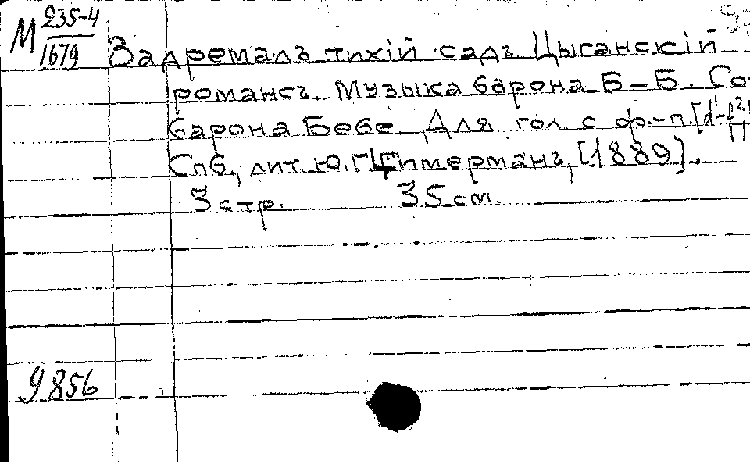 М 235-4
1679
Задремалъ тихій садъ Цыганскій
романсъ. Музыка барона Б-Б. Со
барона Бебе. Для гол с ф.-п [d-f2]
Спб., лит. Ю. Г. Циммерманъ, [1889].
3 стр. 35 см
9856